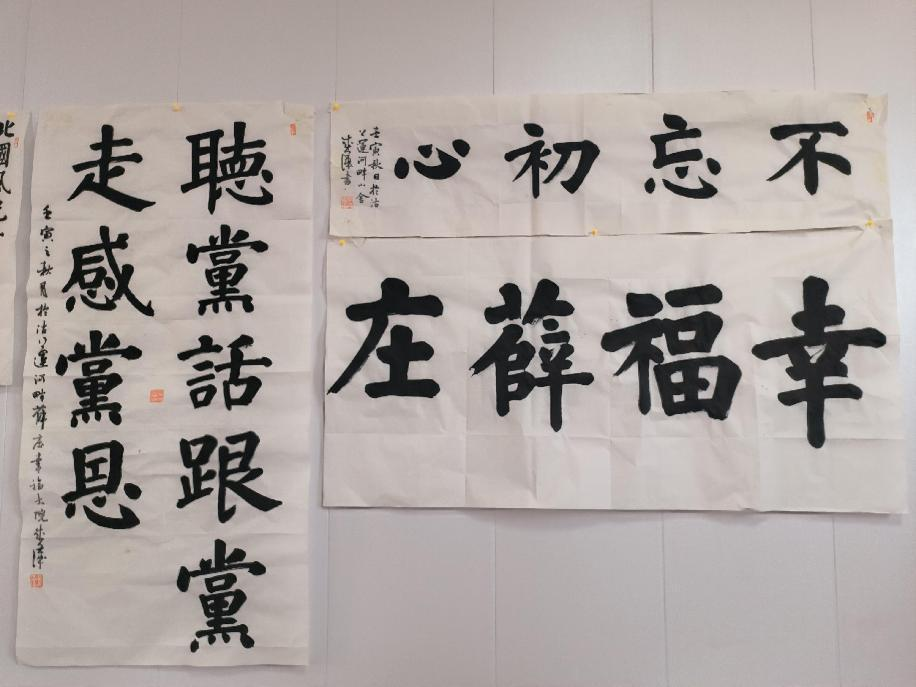 不忘初心
壬寅秋日於沽
上運河畔小舍
幸福薛庄
聽黨話跟黨
走感黨恩
壬寅之秋月於沽上運河畔薛庄幸福大院
北國風光